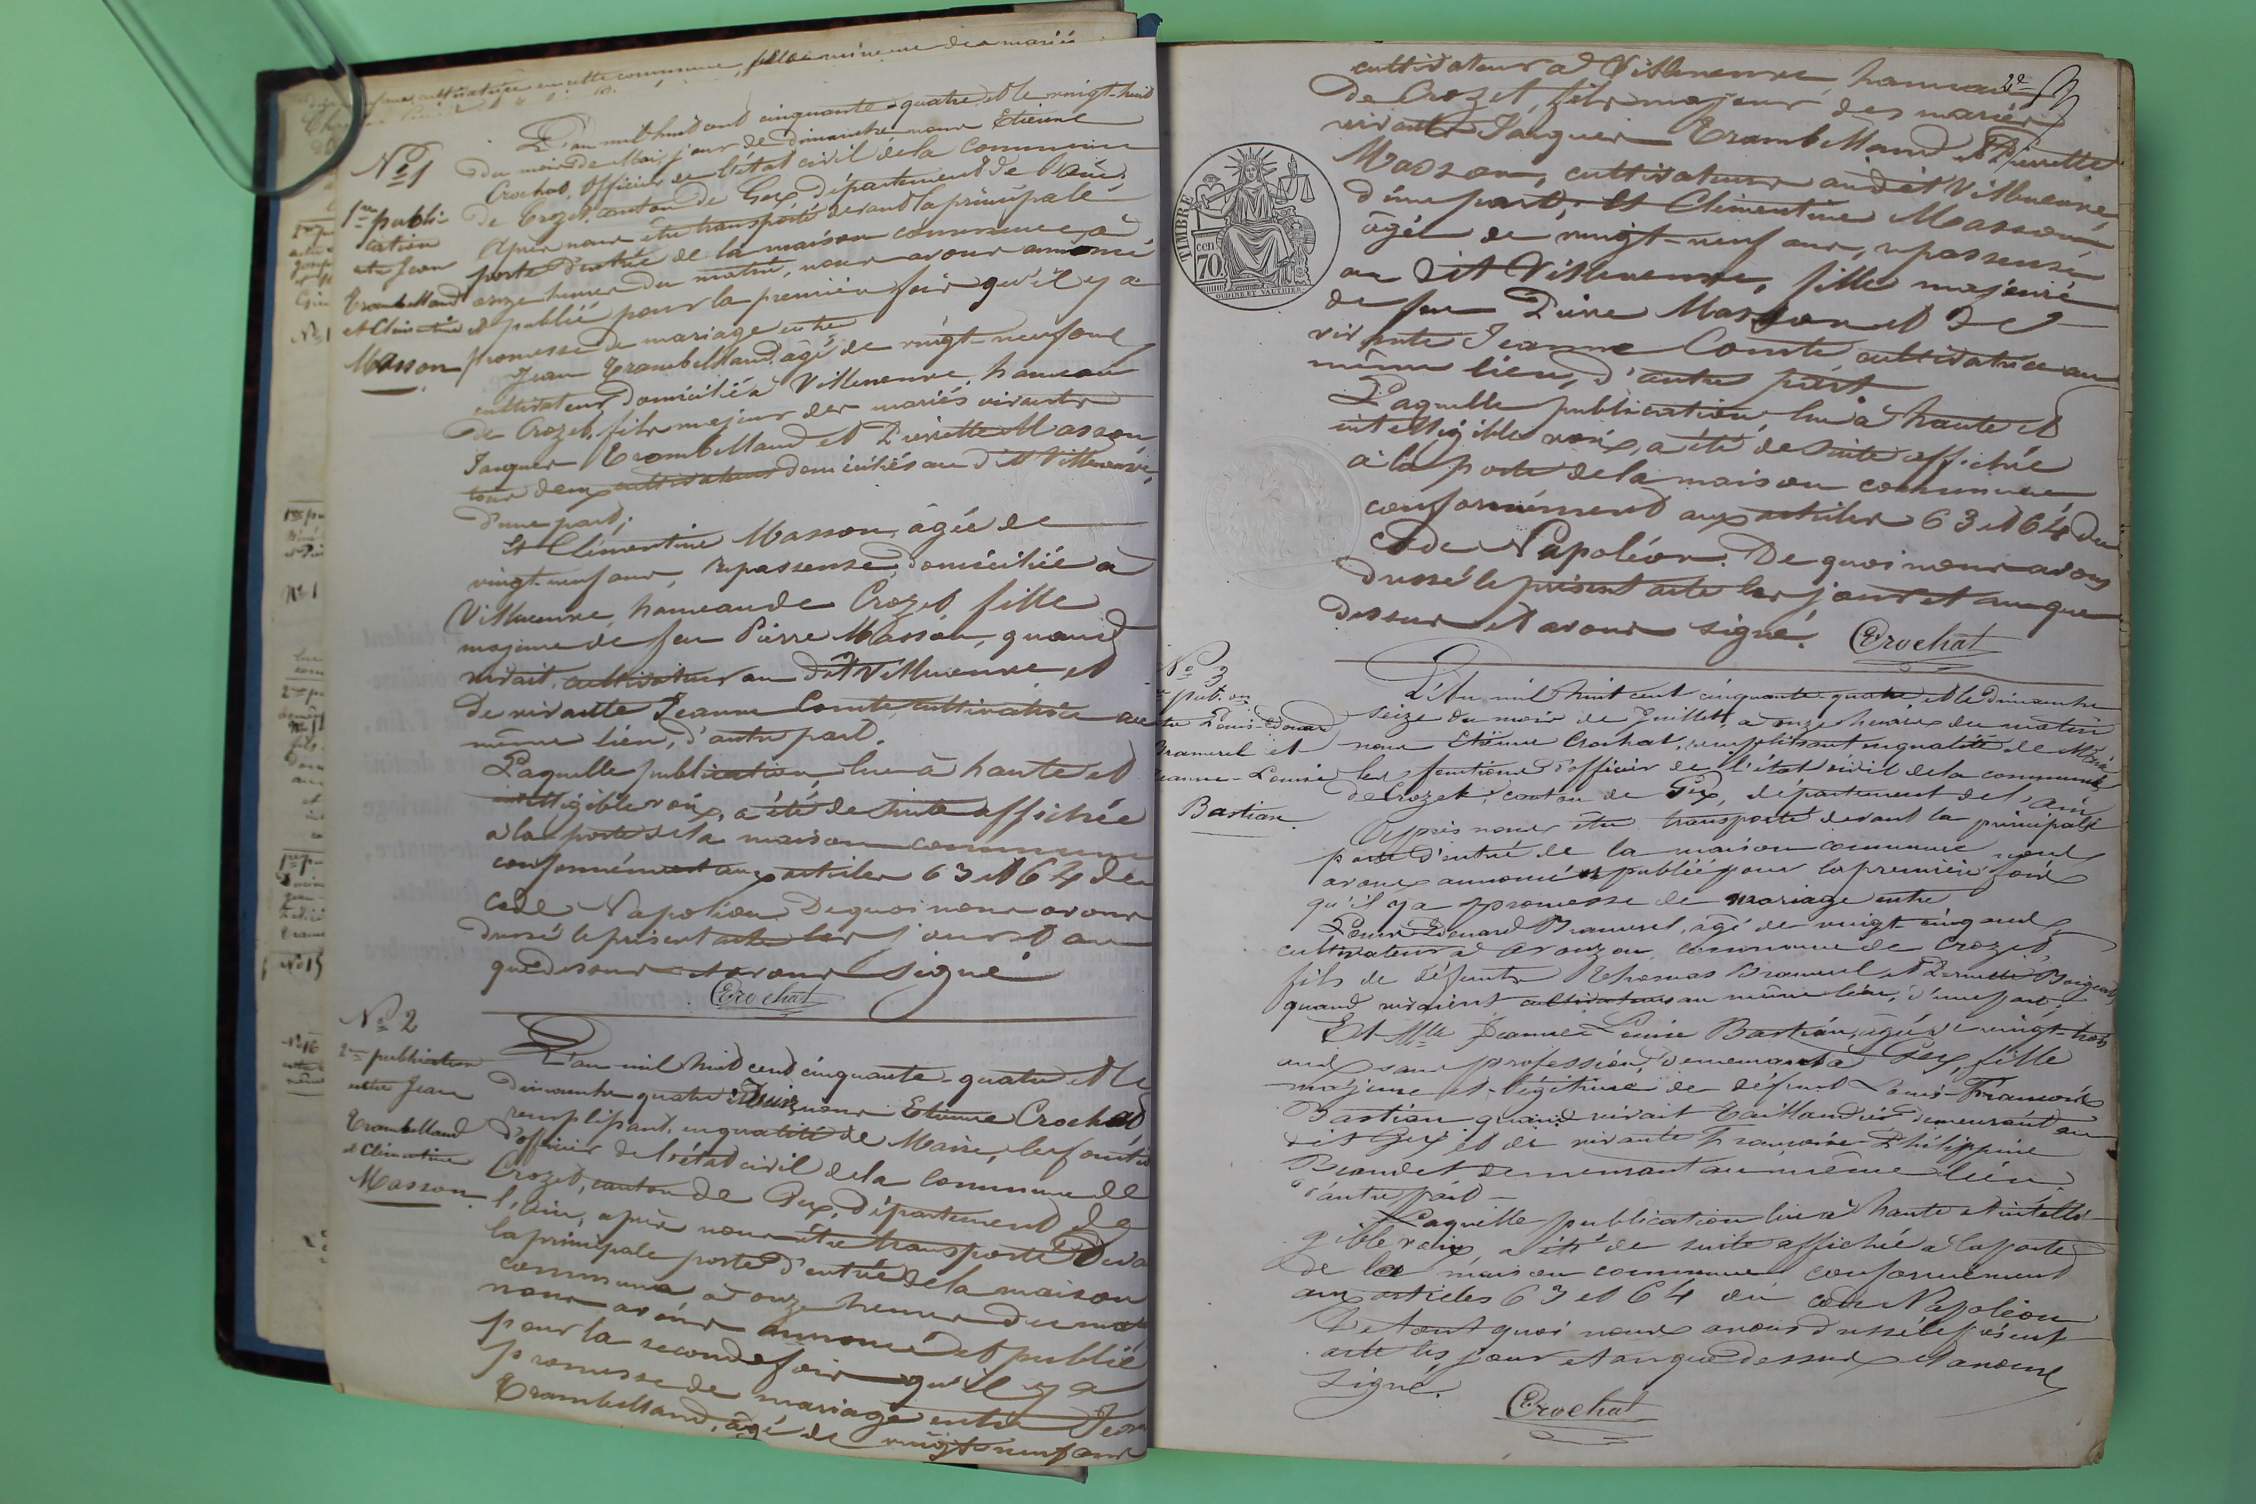 cultivatrice en cette commune, fille mineure des mariés
N° 1
1re publi-
cation
entre Jean
Trambelland
et Clémentine
Masson
L'an mil huit cent cinquante-quatre et le vingt-huit
du mois de Mai, jour de dimanche nous Etienne
Crochat, Officier de l'état civil de la commune
de Crozet, canton de Gex, département de l'Ain,
Après nous être transporté devant la principale
porte d'entrée de la maison commune, à
onze heures du matin, nous avons annoncé
et publié pour la première fois qu'il y a
promesse de mariage entre
Jean Trambelland, âgé de vingt-neuf ans,
cultivateur, domicilié à Villeneuve, hameau
de Crozet, fils majeur des mariés vivants
Jacques Trambelland et Pierrette Masson
tous deux cultivateurs domiciliés au dit Villeneuve,
d'une part;
Et Clémentine Masson, âgée de
vingt-neuf ans, repasseuse, domiciliée à
Villeneuve, hameau de Crozet, fille
majeure de feu Pierre Masson, quand
vivait, cultivateur au dit Villeneuve et
de vivante Jeanne Comte, cultivatrice au
même lieu, d'autre part.
Laquelle publication, lue à haute et
intelligible voix, a été de suite affichée
à la porte de la maison commune
conformément aux articles 63 et 64 du
code Napoléon. De quoi nous avons
dressé le présent acte les jour et an
que dessus et avons signé.
Crochat
N° 2
2me publication
entre Jean
Trambelland
et Clémentine
Masson.
L'an mil huit cent cinquante-quatre et le
dimanche quatre Juin, nous Etienne Crochat,
remplissant, en qualité de Maire, les foncti
d'officier de l'état civil de la commune de
Crozet, canton de Gex, département de
l'Ain, après nous être transporté deva
la principale porte d'entrée de la maison
commune à onze heures du mat
nous avons annoncé et publié
pour la seconde fois qu'il y a
promesse de mariage entre Jean
Trambelland, âgé de vingt-neuf ans
2e
cultivateur à Villeneuve hameau
de Crozet, fils majeur des mariés
vivants Jacques Trambelland et Pierrette
Masson, cultivateurs au dit Villeneuve,
d'une part; Et Clémentine Masson
âgée de vingt-neuf ans, repasseuse
au dit Villeneuve, fille majeure
de feu Pierre Masson et de
vivante Jeanne Comte, cultivatrice au
même lieu, d'autre part.
Laquelle publication, lue à haute et
intelligible voix, a été de suite affichée
à la porte de la maison commune
conformément aux articles 63 et 64 du
code Napoléon. De quoi nous avons
dressé le présent acte les jour et an que
dessus et avons signé.
Crochat
TIMBRE
cen
70.
OUDINE ET VAUTHIER
N° 3
pub.on
Louis-Edouard
Brameret et
Jeanne-Louise
Bastian.
L'An mil huit cent cinquante-quatre, et le dimanche
seize du mois de Juillet, à onze heures du matin
nous Etienne Crochat, remplissant en qualité de Maire
les fonctions d'officier de l'état civil de la commune
de Crozet, canton de Gex, département de l'Ain
Après nous être transporté devant la principale
porte d'entrée de la maison commune nous
avons annoncé et publié pour la première fois
qu'il y a promesse de mariage entre
Louis Edouard Brameret, âgé de vingt cinq ans
cultivateur à Avouzon commune de Crozet,
fils de défunts Thomas Brameret et
quand vivaient cultivateurs au même lieu, d'une part,
Et Mlle Jeanne Louise Bastian, âgée de vingt-trois
ans, sans profession, demeurant à Gex, fille
majeure et légitime de défunt Louis-François
Bastian quand vivait Taillandier demeurant au
dit Gex et de vivante Françoise Philippine
demeurant au même lieu
d'autre part –
Laquelle publication lue à haute et intelli-
gible voix, a été de suite affichée à la porte
de la maison commune conformément
aux articles 63 et 64 du code Napoléon
De tout quoi nous avons dressé le présent
acte les jour et an que dessus et avons
signé.
Crochat